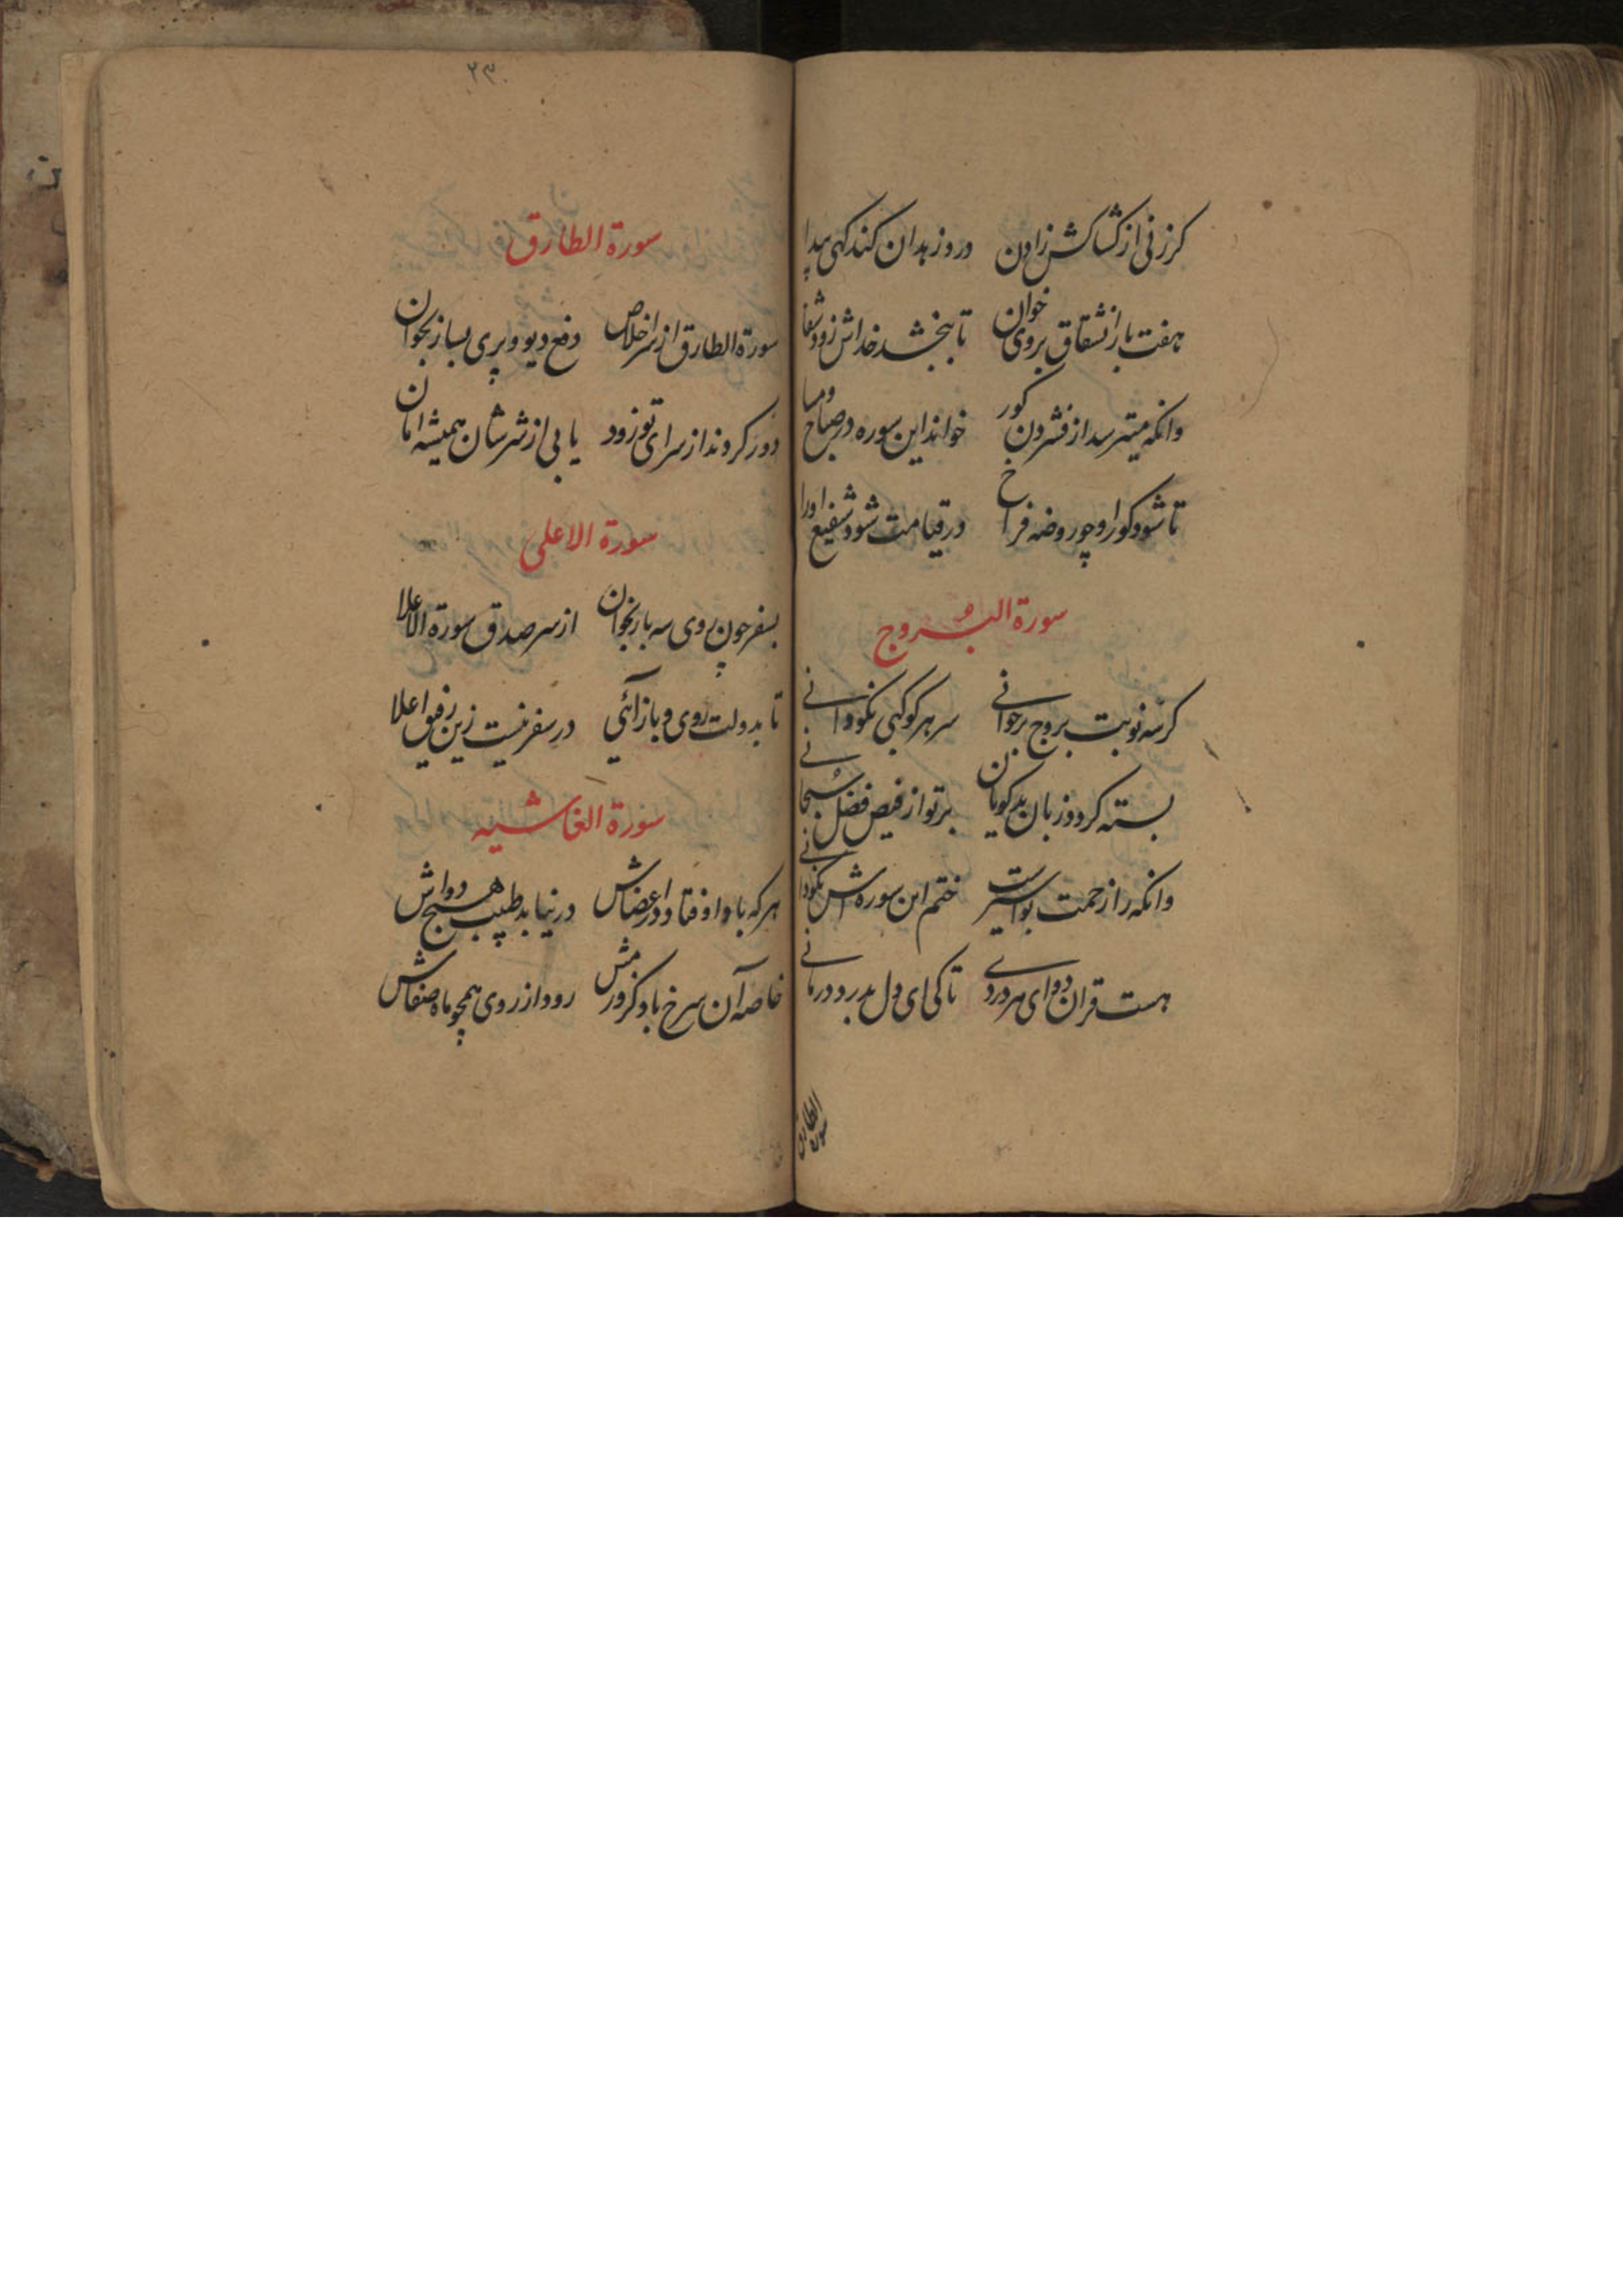 کرزنی از کشاکش زادن دروزهدان کند کهی پیدا
هفت بار انشقاق بروی خوان تا ببخشد خداش زود شفا
وانکه میترسد از فشردن کور خواند این سوره در صباح ومسا
تا شود کور او چو روضه فراخ در قیامت شود شفیع اورا
سورة البروج
کر سه نوبت بروج برخوانی سر هر کوکبی نکو دانی
بسته کردد زبان بدکویان بر تو از فیض فضل سبحانی
وانکه را زحمت بواسیر است ختم این سوره اش نکو دانی
هست قران دوای هر دردی تا کی ای دل بدرد درمانی
سورة الطارق
۲۳۰
سورة الطارق
سورة الطارق از سر اخلاص دفع دیو و پری بساز بخوان
دور کردند از سرای تو زود یابی از شرشان همیشه امان
سورة الاعلی
بسفر چون روی سه بار بخوان از سر صدق سورة الاعلا
تا بدولت روی و باز آئی در سفر نیست زین رفیق اعلا
سورة الغاشیه
هرکه باد اوفتاد در اعضاش در نیابد طبیب هیچ دواش
خاصه آن سرخ باد کز ورمش رود از روی همچو ماه صفاش